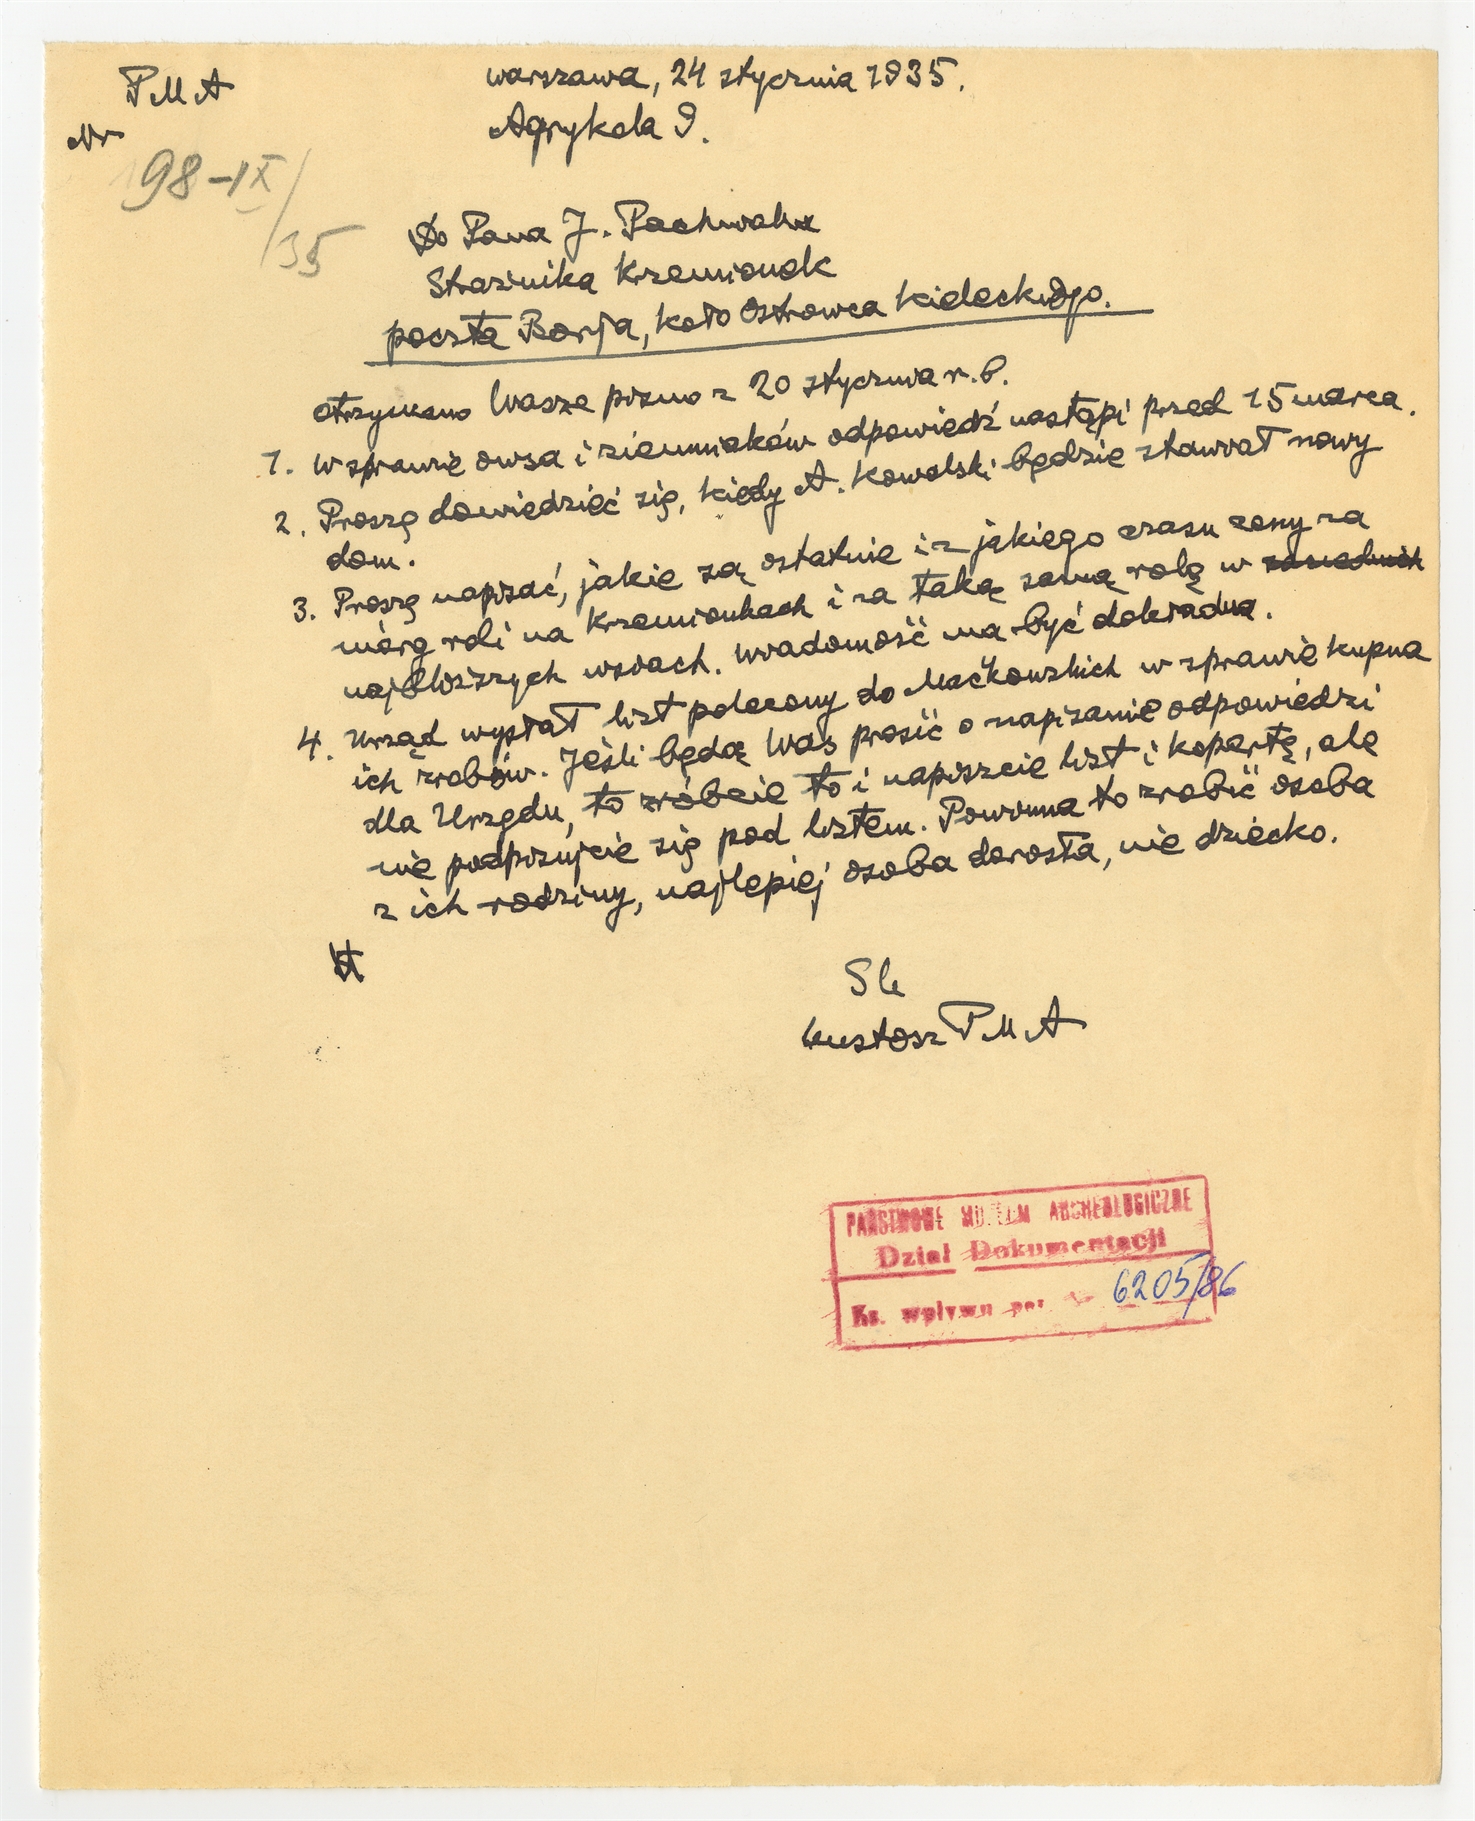 PMA
Nr
98-IX/35
Warszawa, 24 stycznia 1935.
Agrykola 9.
Do Pana J. Pachwalka
Strażnika Krzemionek
poczta Borja, koło Ostrowca Kieleckiego.
Otrzymano Wasze pismo z 20 stycznia r.b.
1. W sprawie owsa i ziemniaków odpowiedź nastąpi przed 15 marca.
2. Proszę dowiedzieć się, kiedy A. Kowalski będzie stawiał nowy
dom.
3. Proszę napisać, jakie są ostatnie i z jakiego czasu ceny za
mórg roli na Krzemionkach i za taką samą rolę w
najbliższych wsiach. Wiadomość ma być dokładna.
4. Urząd wysłał list polecony do Maćkowskich w sprawie kupna
ich zrobów. Jeśli będą Was prosić o napisanie odpowiedzi
dla Urzędu, to zróbcie to i napiszcie list i kopertę, ale
nie podpisujcie się pod listem. Powinna to zrobić osoba
z ich rodziny, najlepiej osoba dorosła, nie dziecko.
Kustosz PMA
PAŃSTWOWE MUZEUM ARCHEOLOGICZNE
Dział Dokumentacji
Ks. wpływu poz. 6205/86